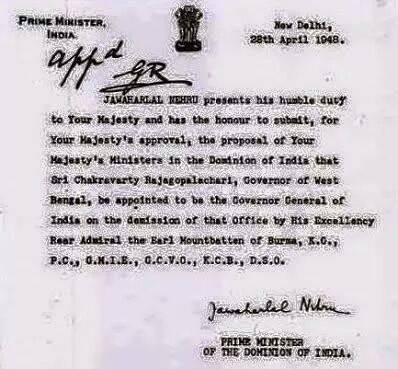 PRIME MINISTER,
INDIA.
New Delhi,
28th April 1948.
appd
GR
JAWAHARLAL NEHRU presents his humble duty
to Your Majesty and has the honour to submit, for
Your Majesty's approval, the proposal of Your
Majesty's Ministers in the Dominion of India that
Sri Chakravarty Rajagopalachari, Governor of West
Bengal, be appointed to be the Governor General of
India on the demission of that Office by His Excellency
Rear Admiral the Earl Mountbatten of Burma, K.G.,
P.C., G.M.I.E., G.C.V.O., K.C.B., D.S.O.
Jawaharlal Nehru
PRIME MINISTER
OF THE DOMINION OF INDIA.